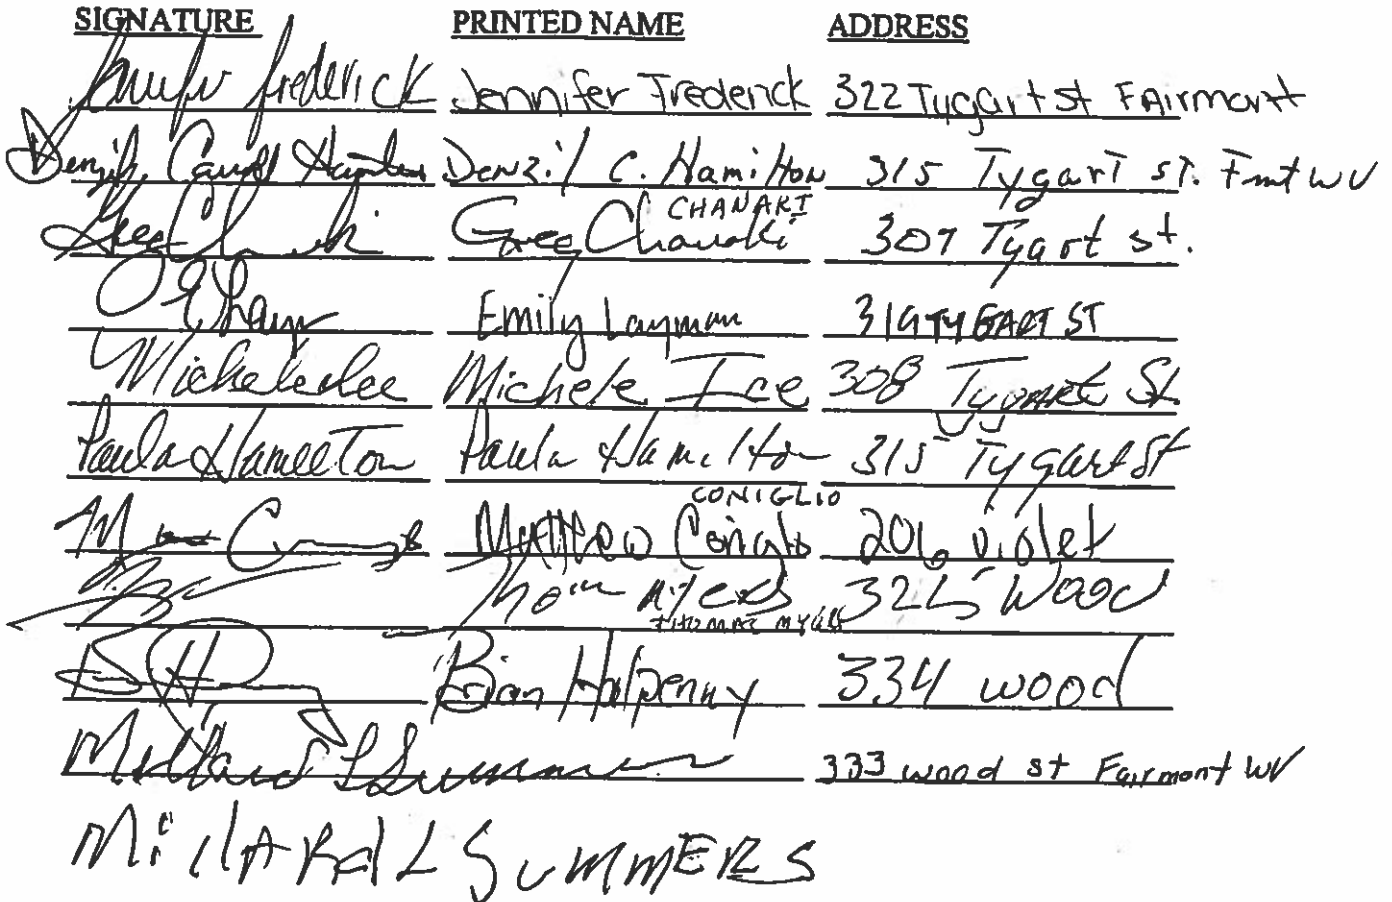 SIGNATURE PRINTED NAME ADDRESS
Jennifer Frederick Jennifer Frederick 322 Tygart st FAirmont
Denzil Carroll Hamilton Denzil C. Hamilton 315 Tygart st. Fmt WV
CHANAKI
Greg Chanaki Greg Chanaki 307 Tygart st.
Emily Layman 319 TYGART ST
Michele Ice Michele Ice 308 Tygart St.
Paula Hamilton Paula Hamilton 315 Tygart St
CONIGLIO
Matthew Coniglio 206 Violet
Thom Myers 325 Wood
THOMAS MYERS
Brian Halpenny 334 wood
Millard L Summers 333 wood st Fairmont WV
MillARd L SUMMERS